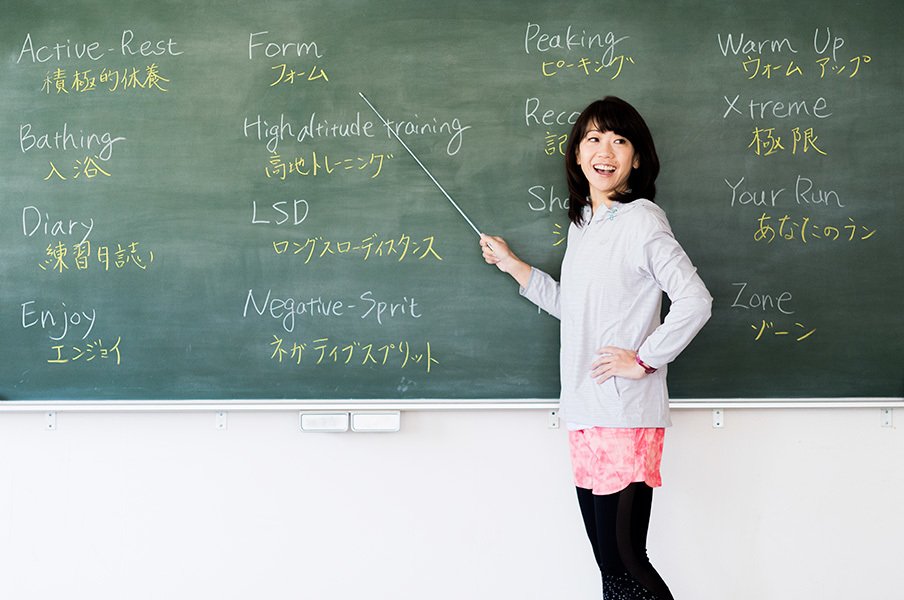 Active-Rest
積極的休養
Bathing
入浴
Diary
練習日誌
Enjoy
エンジョイ
Form
フォーム
High altitude training
高地トレーニング
LSD
ロングスローディスタンス
Negative-Sprit
ネガティブスプリット
Peaking
ピーキング
Warm Up
ウォームアップ
Xtreme
極限
Your Run
あなたのラン
Zone
ゾーン